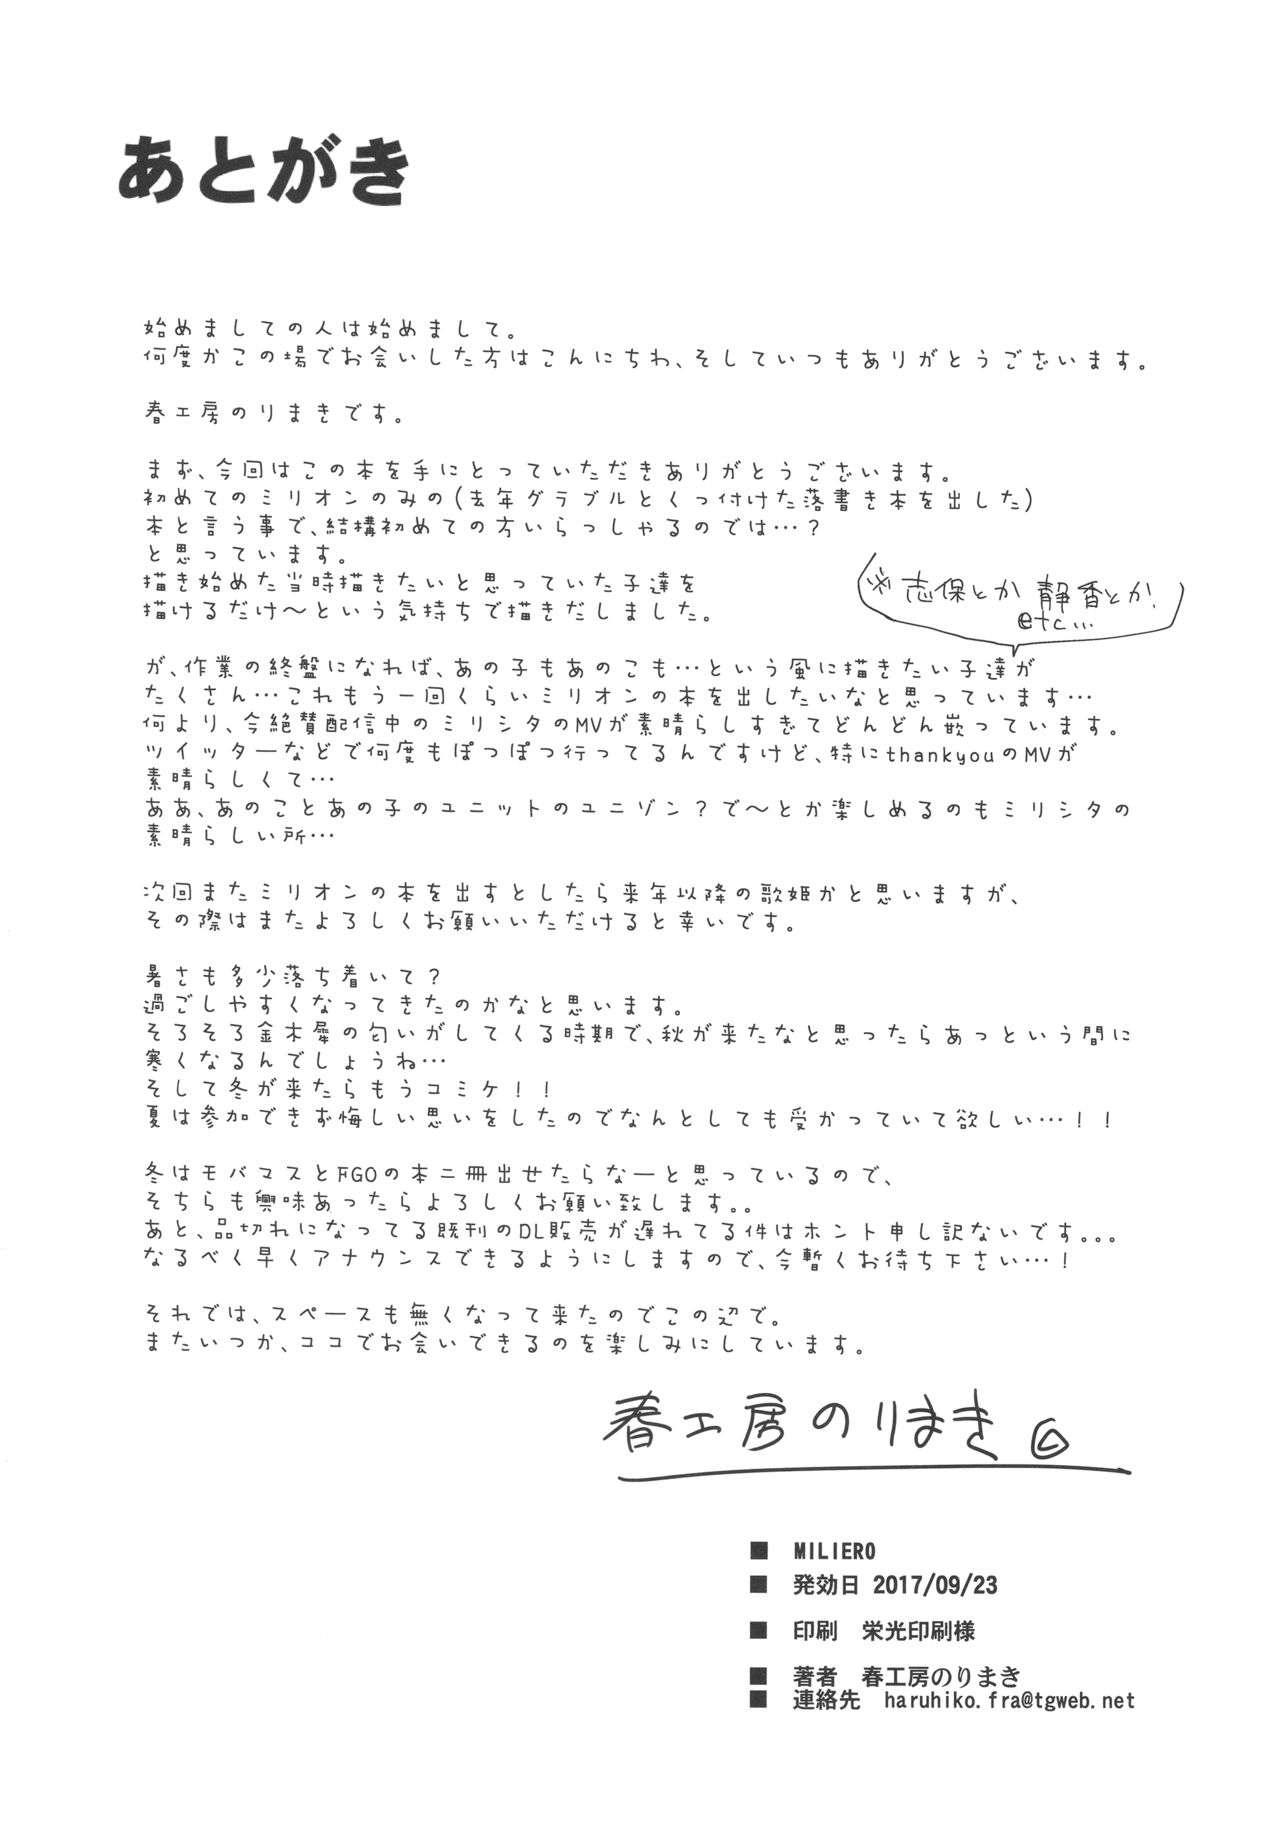 あとがき
始めましての人は始めまして。
何度かこの場でお会いした方はこんにちわ、そしていつもありがとうございます。
春工房のりまきです。
まず、今回はこの本を手にとっていただきありがとうございます。
初めてのミリオンのみの(去年グラブルとくっ付けた落書き本を出した)
本と言う事で、結構初めての方いらっしゃるのでは…？
と思っています。
描き始めた当時描きたいと思っていた子達を
描けるだけ～という気持ちで描きだしました。
※志保とか 静香とか
etc...
が、作業の終盤になれば、あの子もあのこも…という風に描きたい子達が
たくさん…これもう一回くらいミリオンの本を出したいなと思っています…
何より、今絶賛配信中のミリシタのMVが素晴らしすぎてどんどん嵌っています。
ツイッターなどで何度もぽつぽつ行ってるんですけど、特にthankyouのMVが
素晴らしくて…
ああ、あのことあの子のユニットのユニゾン？で～とか楽しめるのもミリシタの
素晴らしい所…
次回またミリオンの本を出すとしたら来年以降の歌姫かと思いますが、
その際はまたよろしくお願いいただけると幸いです。
暑さも多少落ち着いて？
過ごしやすくなってきたのかなと思います。
そろそろ金木犀の匂いがしてくる時期で、秋が来たなと思ったらあっという間に
寒くなるんでしょうね…
そして冬が来たらもうコミケ！！
夏は参加できず悔しい思いをしたのでなんとしても受かっていて欲しい…！！
冬はモバマスとFGOの本二冊出せたらなーと思っているので、
そちらも興味あったらよろしくお願い致します。。
あと、品切れになってる既刊のDL販売が遅れてる件はホント申し訳ないです。。。
なるべく早くアナウンスできるようにしますので、今暫くお待ち下さい…！
それでは、スペースも無くなって来たのでこの辺で。
またいつか、ココでお会いできるのを楽しみにしています。
春工房のりまき
■ MILIERO
■ 発効日 2017/09/23
■ 印刷 栄光印刷様
■ 著者 春工房のりまき
■ 連絡先 haruhiko.fra@tgweb.net